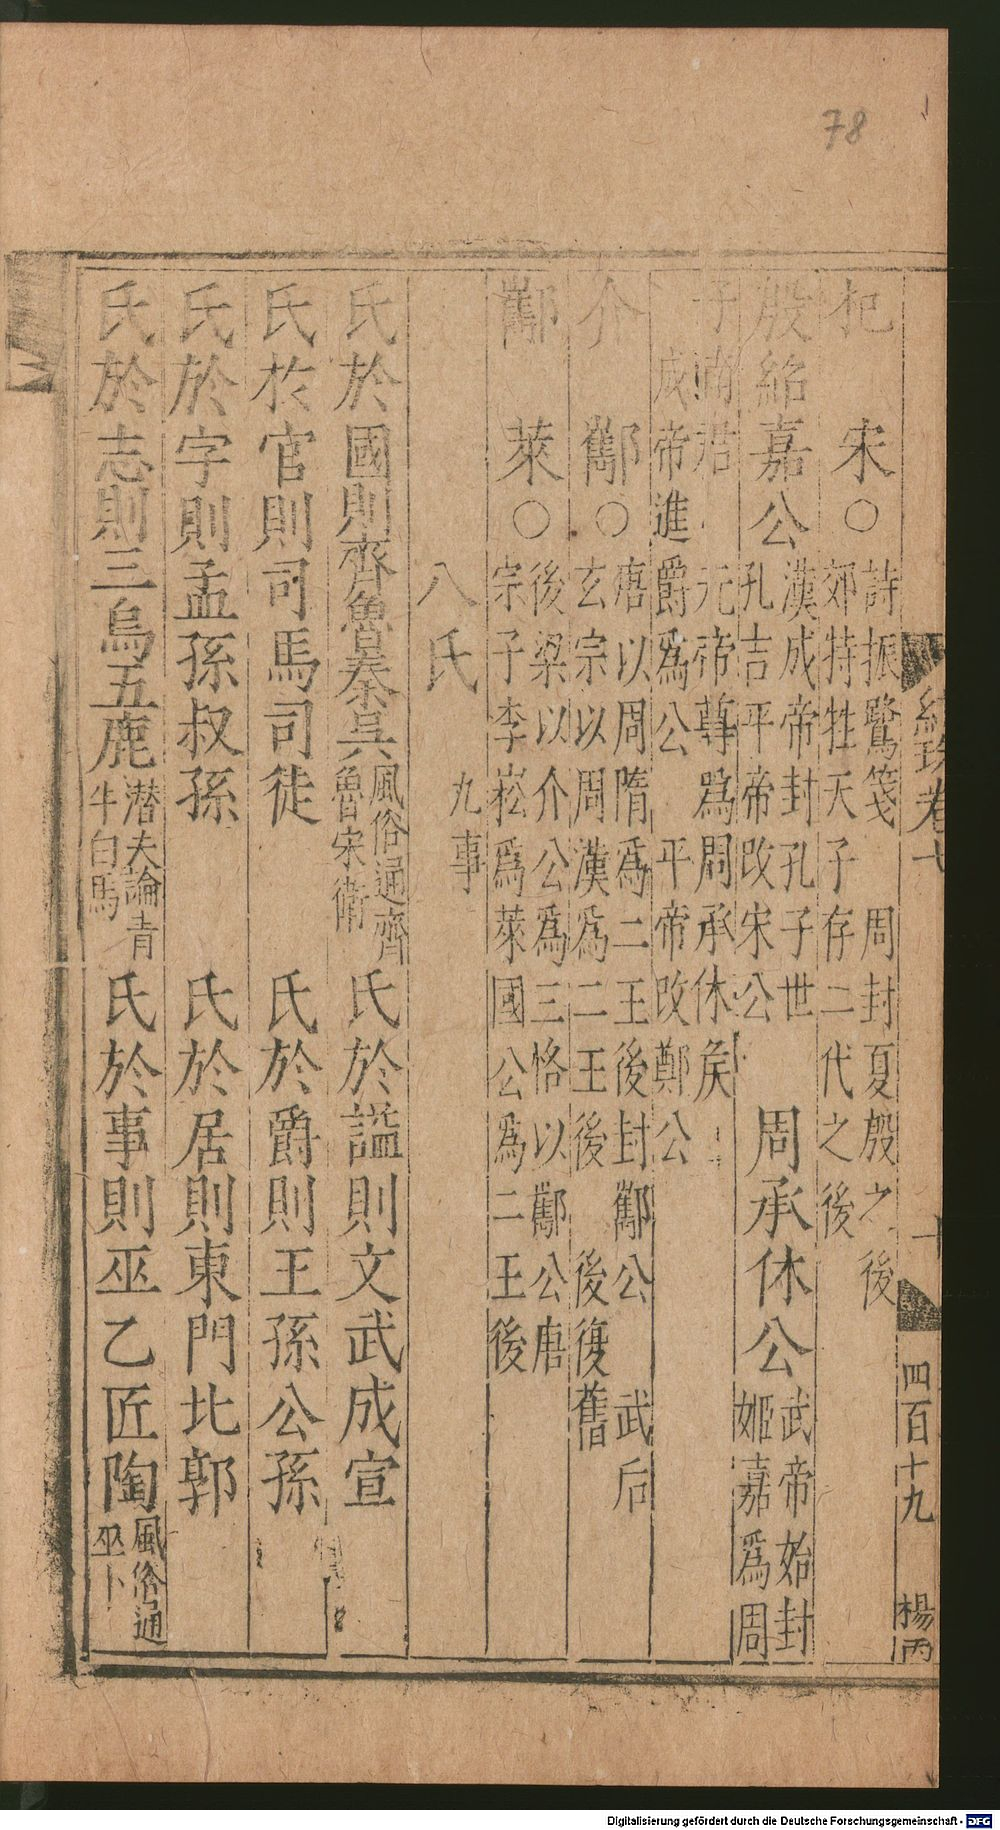 78
紺珠卷十
十
四百十九
楊丙
杞 宋○詩振鷺箋 周封夏殷之後
郊特牲天子存二代之後
殷紹嘉公漢成帝封孔子世
孔吉平帝改宋公 周承休公武帝始封
姬嘉為周
子南君 元帝尊為周承休矦
成帝進爵為公 平帝改鄭公
介 酅○唐以周隋為二王後封酅公 武后
玄宗以周漢為二王後 後復舊
酅 萊○後梁以介公為三恪以酅公唐
宗子李崧為萊國公為二王後
八氏 九事
氏於國則齊魯秦吳風俗通齊
魯宋衛 氏於謚則文武成宣
氏於官則司馬司徒 氏於爵則王孫公孫
氏於字則孟孫叔孫 氏於居則東門北郭
氏於志則三烏五鹿潛夫論青
牛白馬 氏於事則巫乙匠陶風俗通
巫卜
Digitalisierung gefördert durch die Deutsche Forschungsgemeinschaft - DFG